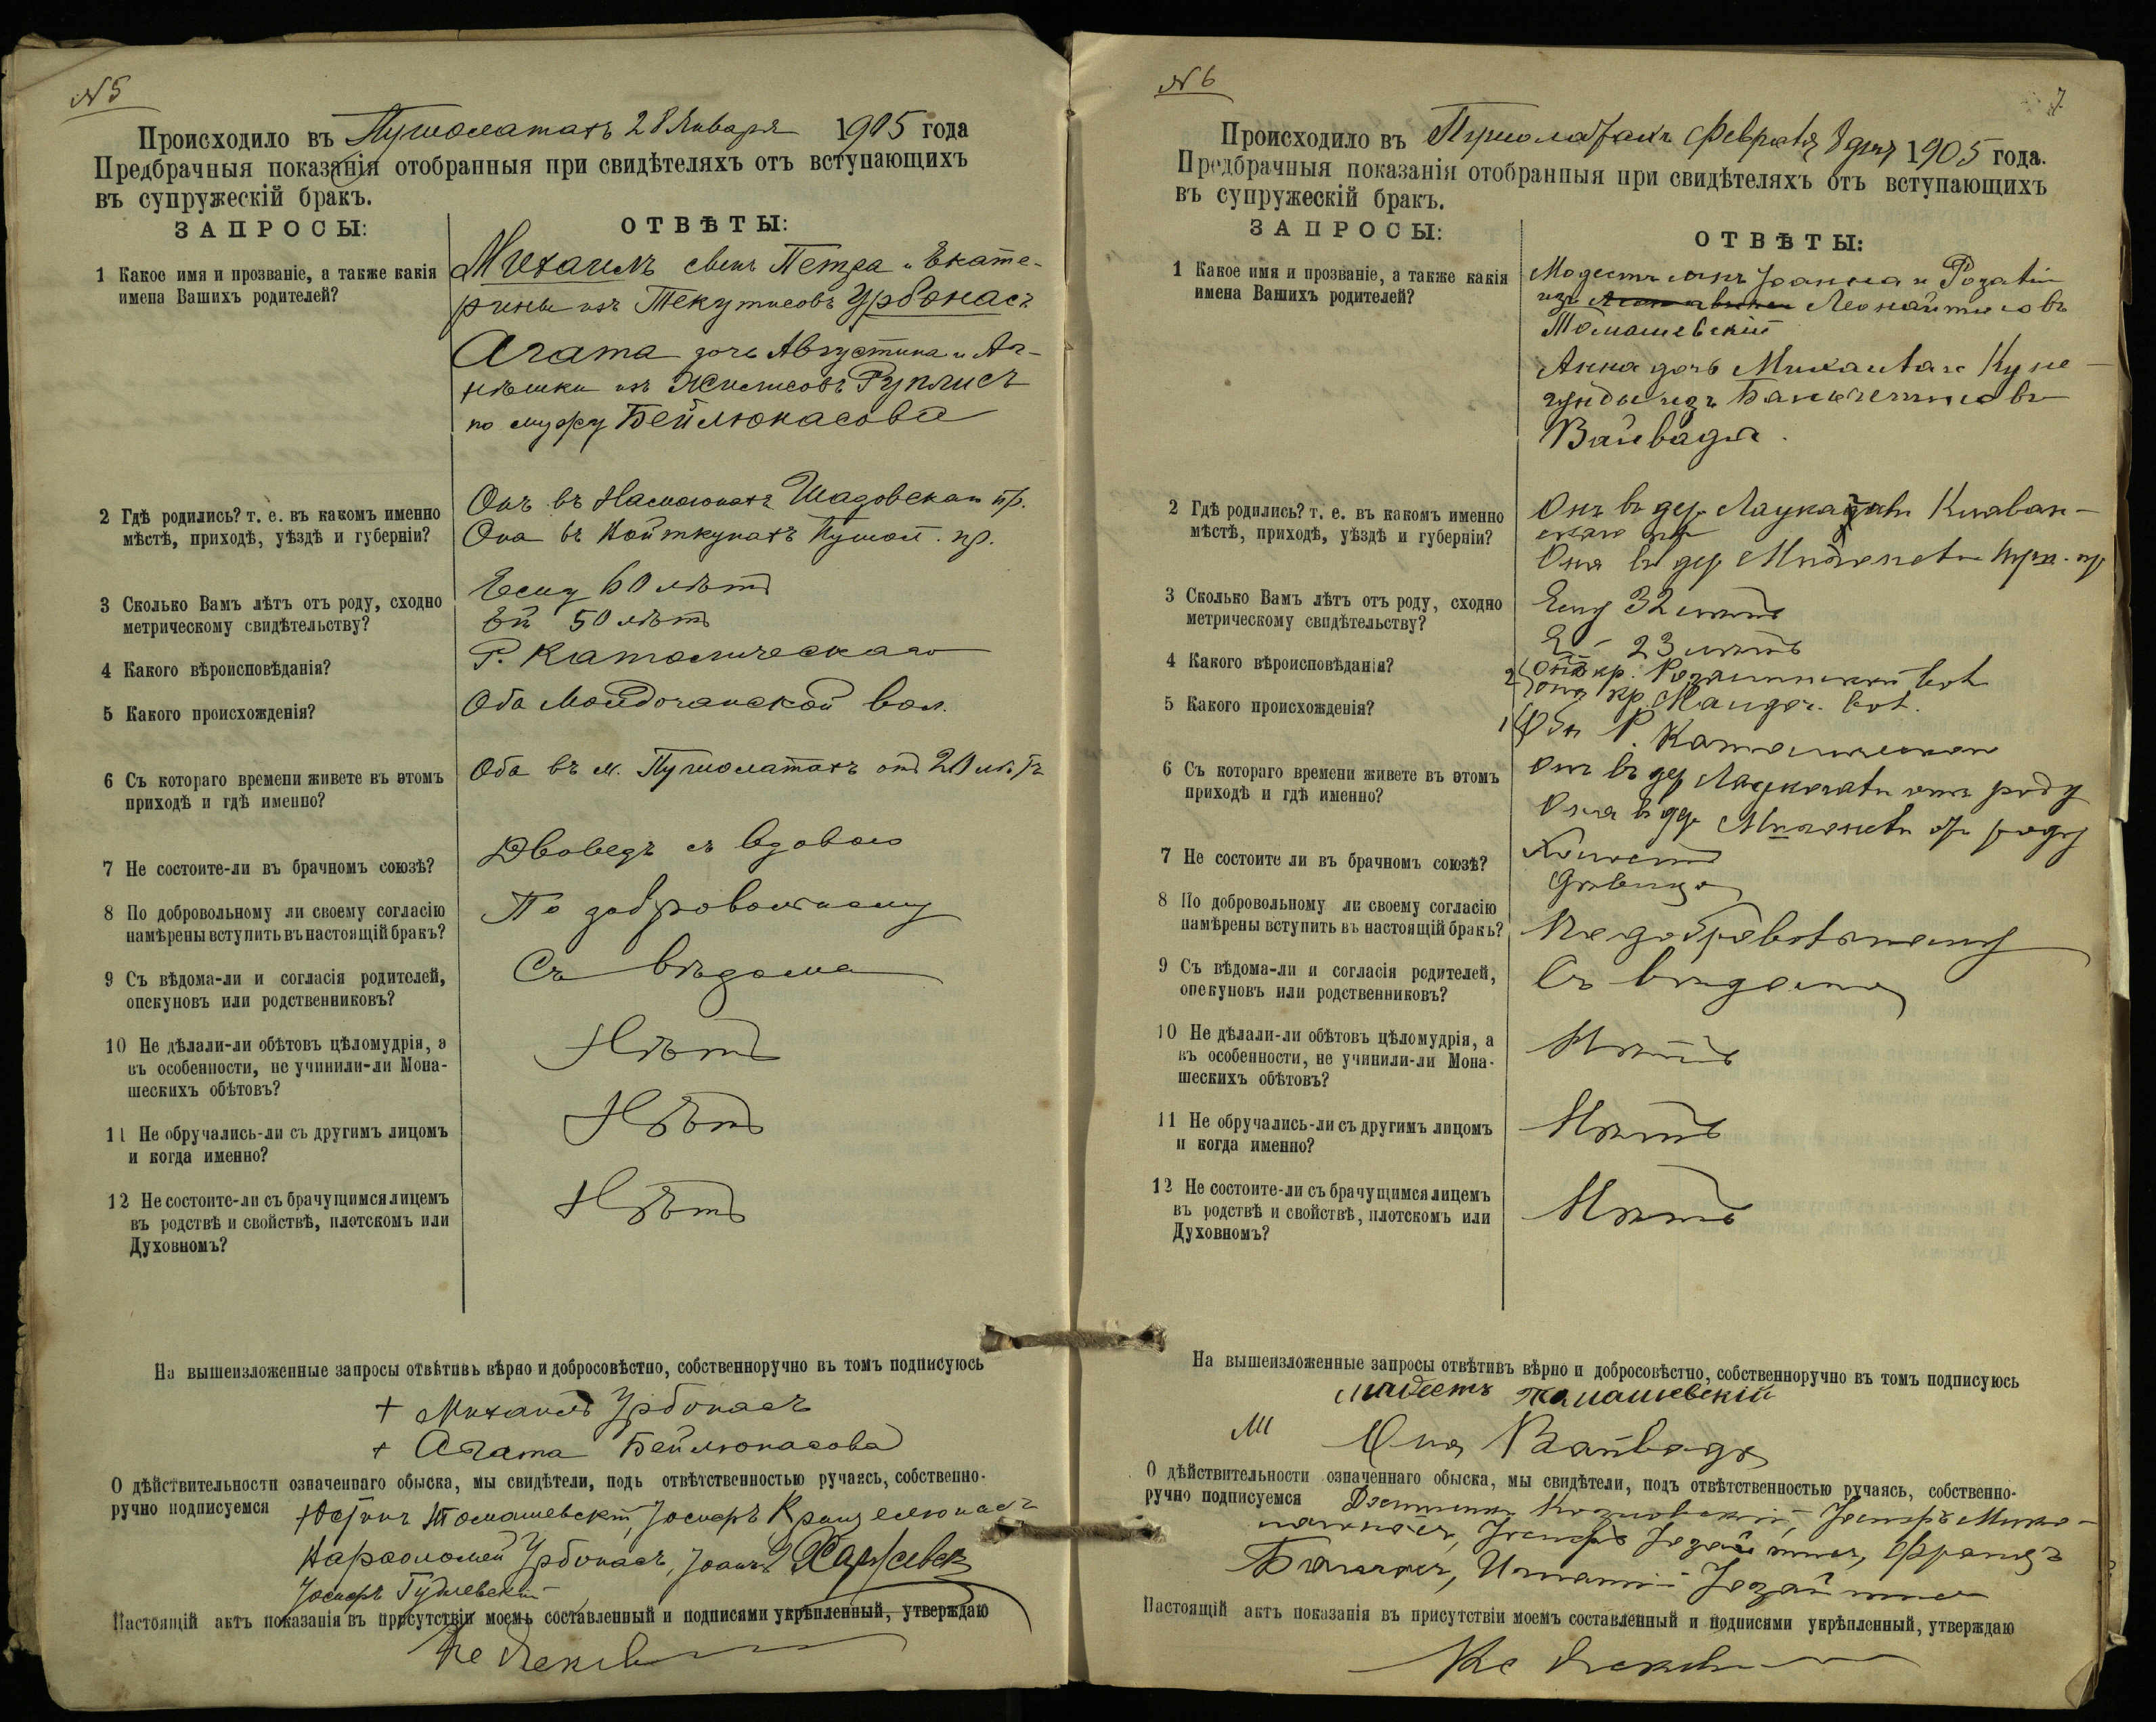 № 5
Происходило въ Пушолатахъ 28 Января 1905 года
Предбрачныя показанія отобранныя при свидѣтеляхъ отъ вступающихъ
въ супружескій бракъ.
ЗАПРОСЫ:
ОТВѢТЫ:
1 Какое имя и прозваніе, а также какія
имена Вашихъ родителей?
Михаилъ сынъ Петра и Екате-
рины изъ Текутисовъ Урбонасъ
Агата дочь Августина и Аг-
нѣшки изъ Жилисовъ Руплисъ
по мужу Бейлюнасова
2 Гдѣ родились? т. е. въ какомъ именно
мѣстѣ, приходѣ, уѣздѣ и губерніи?
Онъ въ Шадовскаго пр.
Она въ Пушол. пр.
3 Сколько Вамъ лѣтъ отъ роду, сходно
метрическому свидѣтельству?
Ему 60 лѣтъ
Ей 50 лѣтъ
4 Какого вѣроисповѣданія?
Р. Католическаго
5 Какого происхожденія?
Оба вол.
6 Съ котораго времени живете въ этомъ
приходѣ и гдѣ именно?
Оба въ м. Пушолатахъ отъ 20 лѣтъ
7 Не состоите-ли въ брачномъ союзѣ?
Вдовецъ съ вдовою
8 По добровольному ли своему согласію
намѣрены вступить въ настоящій бракъ?
По добровольному
9 Съ вѣдома-ли и согласія родителей,
опекуновъ или родственниковъ?
Съ вѣдома
10 Не дѣлали-ли обѣтовъ цѣломудрія, а
въ особенности, не учинили-ли Мона-
шескихъ обѣтовъ?
Нѣтъ
11 Не обручались-ли съ другимъ лицомъ
и когда именно?
Нѣтъ
12 Не состоите-ли съ брачущимся лицемъ
въ родствѣ и свойствѣ, плотскомъ или
Духовномъ?
Нѣтъ
На вышеизложенные запросы отвѣтивъ вѣрно и добросовѣстно, собственноручно въ томъ подписуюсь
+ Михаилъ Урбонасъ
+ Агата Бейлюнасова
О дѣйствительности означеннаго обыска, мы свидѣтели, подъ отвѣтственностью ручаясь, собственно-
ручно подписуемся Томашевскій, Іосифъ
Урбонасъ, Іоаннъ
Іосифъ
Настоящій актъ показанія въ присутствіи моемъ составленный и подписями укрѣпленный, утверждаю
№ 6
7
Происходило въ Пушолатахъ Февраля 8 дня 1905 года.
Предбрачныя показанія отобранныя при свидѣтеляхъ отъ вступающихъ
въ супружескій бракъ.
ЗАПРОСЫ:
ОТВѢТЫ:
1 Какое имя и прозваніе, а также какія
имена Вашихъ родителей?
Модестъ сынъ Іоанна и Розаліи
изъ Леонайтисовъ
Томашевскій
Анна дочь Михаила и Куне-
гунды изъ
Вайвада.
2 Гдѣ родились? т. е. въ какомъ именно
мѣстѣ, приходѣ, уѣздѣ и губерніи?
Онъ въ дер. Клован-
скаго пр
Она въ дер. пр
3 Сколько Вамъ лѣтъ отъ роду, сходно
метрическому свидѣтельству?
Ему 32 лѣтъ
Ей 23 лѣтъ
4 Какого вѣроисповѣданія?
2 онъ кр. вол
она кр. вол.
5 Какого происхожденія?
1 Оба Р. Католическаго
6 Съ котораго времени живете въ этомъ
приходѣ и гдѣ именно?
Онъ въ дер. отъ роду
Она въ дер. отъ роду
7 Не состоите ли въ брачномъ союзѣ?
Холостъ
дѣвица
8 По добровольному ли своему согласію
намѣрены вступить въ настоящій бракъ?
По добровольному
9 Съ вѣдома-ли и согласія родителей,
опекуновъ или родственниковъ?
Съ вѣдома
10 Не дѣлали-ли обѣтовъ цѣломудрія, а
въ особенности, не учинили-ли Мона-
шескихъ обѣтовъ?
Нѣтъ
11 Не обручались-ли съ другимъ лицомъ
и когда именно?
Нѣтъ
12 Не состоите-ли съ брачущимся лицемъ
въ родствѣ и свойствѣ, плотскомъ или
Духовномъ?
Нѣтъ
На вышеизложенные запросы отвѣтивъ вѣрно и добросовѣстно, собственноручно въ томъ подписуюсь
Модестъ Томашевскій
Вайвада
О дѣйствительности означеннаго обыска, мы свидѣтели, подъ отвѣтственностью ручаясь, собственно-
ручно подписуемся Козловскій, Іосифъ
Іосифъ Францъ
Игнатій
Настоящій актъ показанія въ присутствіи моемъ составленный и подписями укрѣпленный, утверждаю